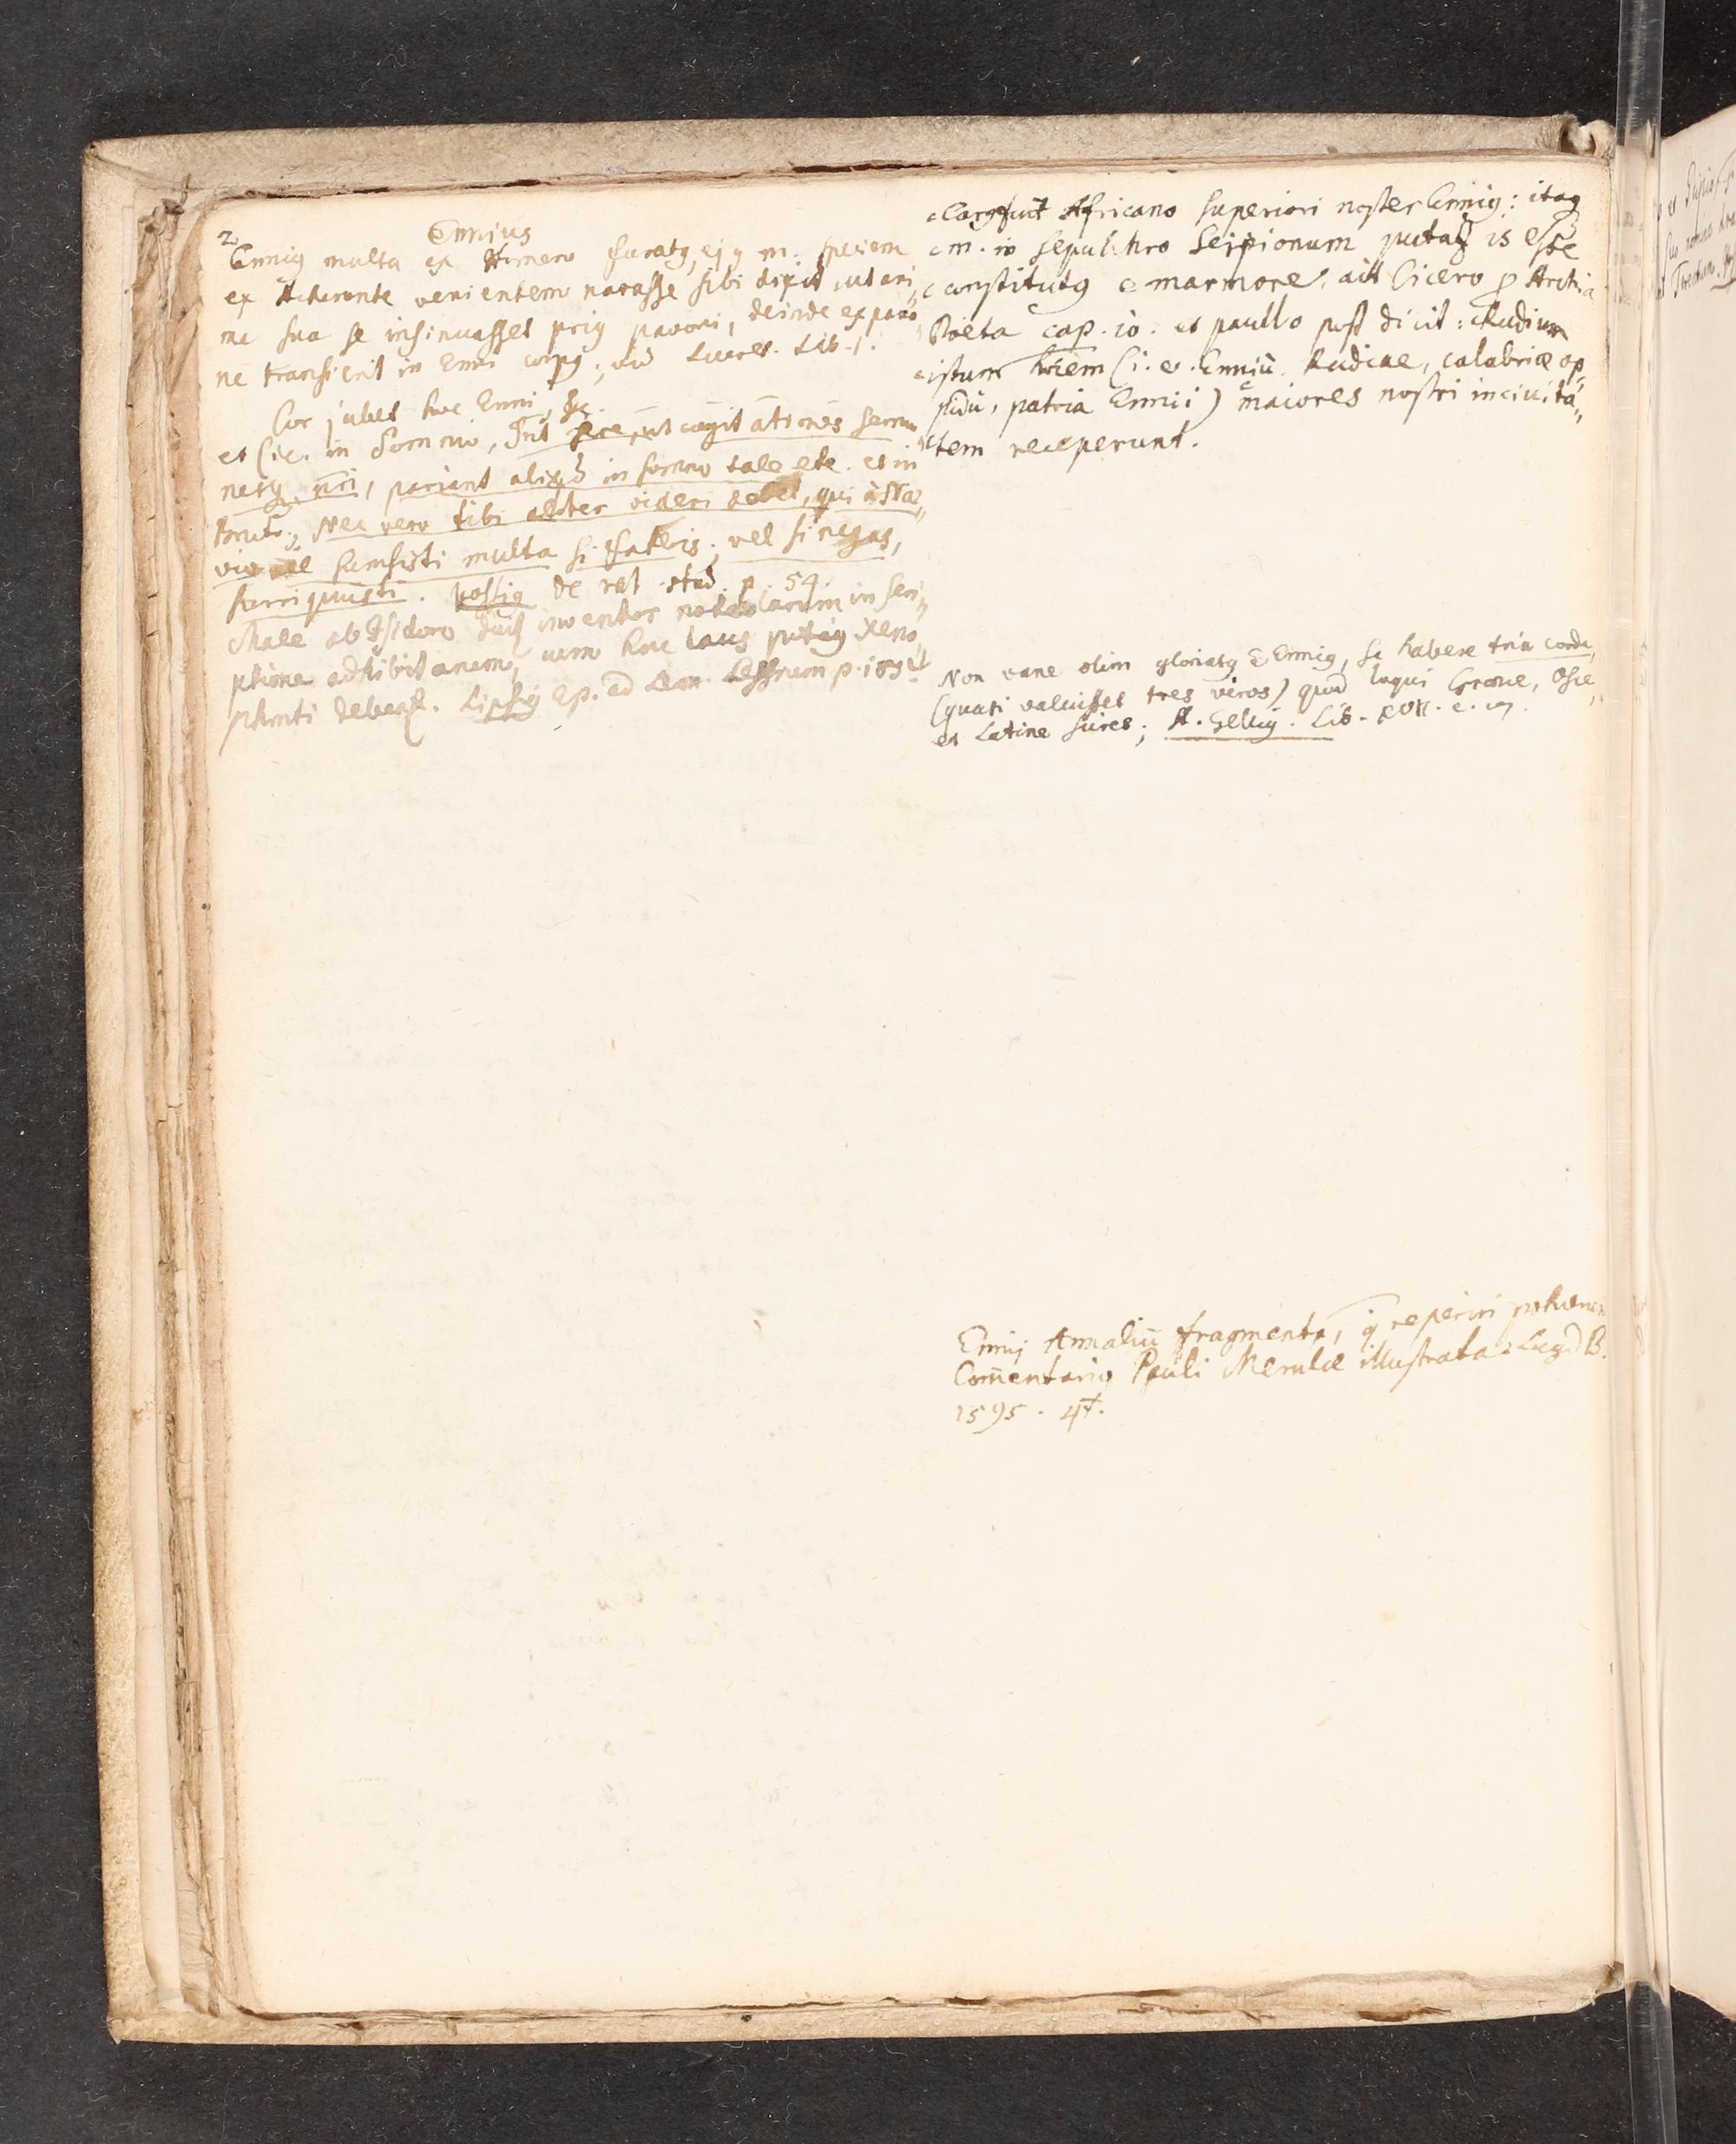 2.
Ennius
Enniꝰ multa ex Homero furatꝰ, ejꝰ n. speciem
ex Acheronte venientem narasse sibi dixit, ut ani„
ma sua se insinuasset priꝰ pavoni, deinde ex pavo
ne transierit in Enni corpꝰ; vid Lucret. Lib. 1.
Cor jubet hoc Enni, &c.
et Cic. in Somnio, fit fere, ut cogitationes sermo
nesqꝫ nri, pariant aliqd in somno tale etc. et in
Bruto, Nec vero tibi aliter videri debet, qui à Næ„
vio vel sumsisti multa si fateris; vel si negas,
surripuisti. Vossiꝰ de rat. stud. p. 54.
Male ab Isidoro dicit inventor notularum in scri„
ptione adhibitarum, cum hæc laus potiꝰ Xeno„
phonti debeat. Lipsiꝰ Ep. ad Lessium p.
Carꝰ fuit Africano superiori noster Enniꝰ: itaqꝫ
em. in sepulchro Scipionum putat is esse
constitutꝰ e marmore. ait Cicero p Archia
Poëta cap. 10. et paullo post dicit: Rudium
istum hoīem (i. e. Enniū. Rudiae, calabriæ op„
pidū, patria Ennii) maiores nostri in civita„
tem receperunt.
Non vane olim gloriatꝰ ē Enniꝰ, se habere tria corda,
(quasi valuisset tres viros) quod loqui Græce, Osce,
et Latine sciret; A. Gelliꝰ. Lib. XVII. c. 17.
Ennij Annaliū fragmenta, q reperiri potuerunt
Com̄entario Pauli Merulæ illustrata. Lugd B.
1595. 4t.